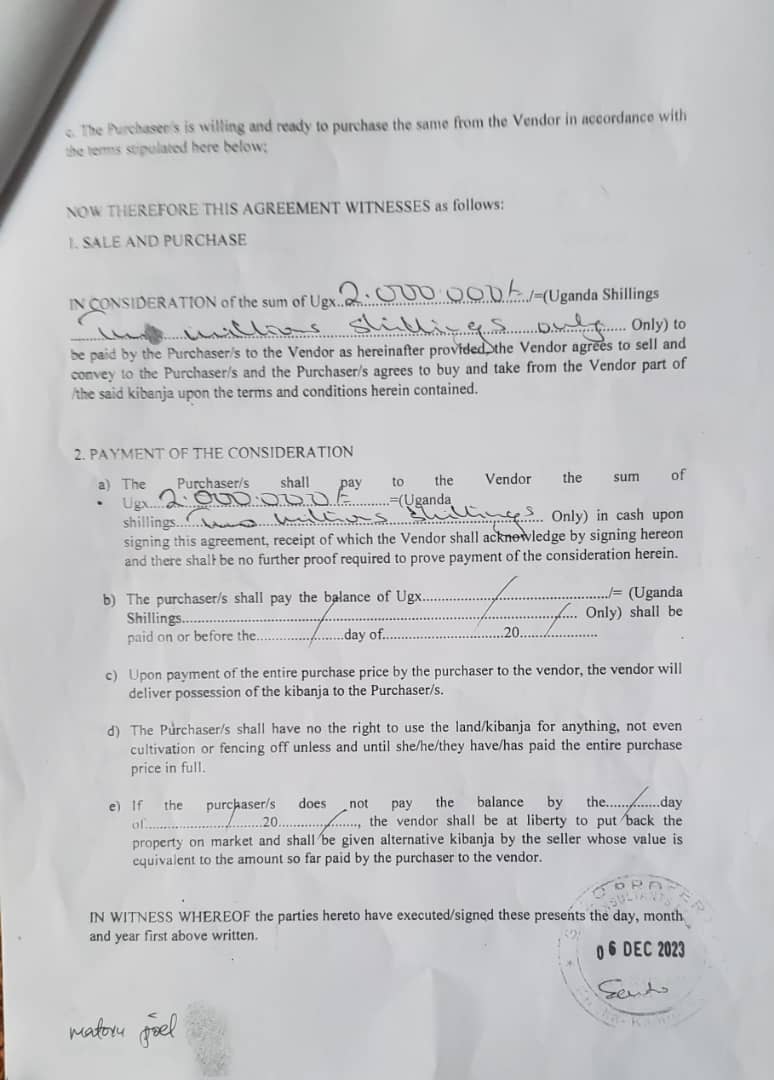 c. The Purchaser/s is willing and ready to purchase the same from the Vendor in accordance with
the terms stipulated here below;
NOW THEREFORE THIS AGREEMENT WITNESSES as follows:
1. SALE AND PURCHASE
IN CONSIDERATION of the sum of Ugx..2.000.000/=..../=(Uganda Shillings
Two millions Shillings only...... Only) to
be paid by the Purchaser/s to the Vendor as hereinafter provided, the Vendor agrees to sell and
convey to the Purchaser/s and the Purchaser/s agrees to buy and take from the Vendor part of
/the said kibanja upon the terms and conditions herein contained.
2. PAYMENT OF THE CONSIDERATION
a) The Purchaser/s shall pay to the Vendor the sum of
• Ugx....2.000.000/=..........=(Uganda
shillings...Two millions Shillings... Only) in cash upon
signing this agreement, receipt of which the Vendor shall acknowledge by signing hereon
and there shall be no further proof required to prove payment of the consideration herein.
b) The purchaser/s shall pay the balance of Ugx............................................/= (Uganda
Shillings.................................................................................... Only) shall be
paid on or before the...............day of..............................20...................
c) Upon payment of the entire purchase price by the purchaser to the vendor, the vendor will
deliver possession of the kibanja to the Purchaser/s.
d) The Purchaser/s shall have no the right to use the land/kibanja for anything, not even
cultivation or fencing off unless and until she/he/they have/has paid the entire purchase
price in full.
e) If the purchaser/s does not pay the balance by the.............day
of.............................20...................., the vendor shall be at liberty to put back the
property on market and shall be given alternative kibanja by the seller whose value is
equivalent to the amount so far paid by the purchaser to the vendor.
IN WITNESS WHEREOF the parties hereto have executed/signed these presents the day, month
and year first above written.
06 DEC 2023
matovu joel